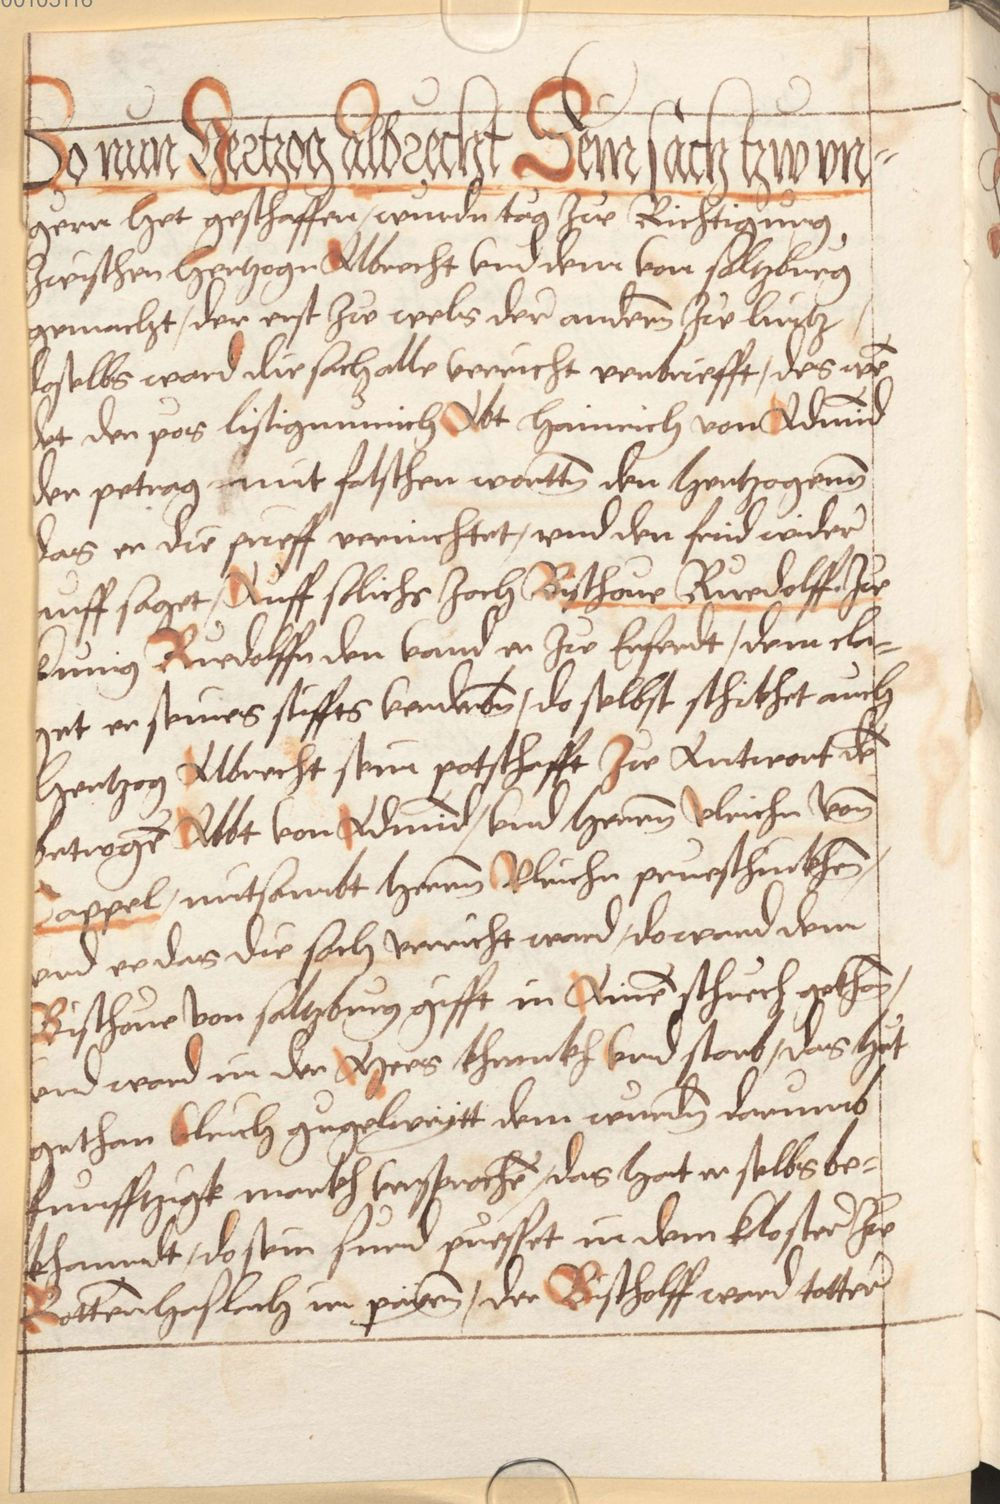 00103116
So nun Hertzog Albrecht Sein sach tzw vn-
gern het geschaffen / wurdn tag Zw Richtigung
Zwischen Hertzogn Albrecht vnd dem von saltzburg
gemacht / der erst Zw wels der andern Zw lintz /
doselbs ward die sach alle verricht verbriefft / des
det der pos listig munich Abt Hainrich von Admund
der petrag mit falschen wortten den Hertzogenn
das er die prieff vernichtet / vnd den frid wider
auff saget / Auff solichs Zoch Bischoue Ruedolff Zw
kunig Ruedolffn den vand er Zw Erfordt / dem cla-
get er seines stiffts verderbn / do selbst schikhet auch
Hertzog Albrecht sein potschafft Zw Antwort dē
Abbt von Admund / vnd Herrn Vlrichn von
Cappel / mitsambt Herrn Vlrichn prueschinkhen /
vnd ee das die sach verricht ward / do ward dem
Bischoue von saltzburg gifft in Ainē gethan /
vnd ward in der khrankh vnd starb / das het
gethan Vlrich dem wurdn darumb
funfftzigk markh versprochē / das hat er selbs be-
khanndt / do sein sund puesset in dem kloster Zw
Rottenhaslach in pairn / der Bischolff ward totter